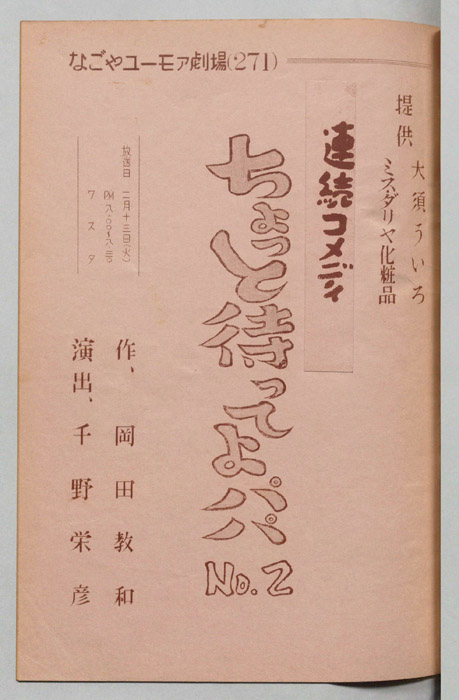 なごやユーモア劇場(271)
提供 大須ういろ
ミス・ダリヤ化粧品
連続コメディ
ちょっと待ってよパパ No.2
放送日 二月十三日(火)
PM八・〇〇〜八・三〇
ワスタ
作、岡田教和
演出、千野栄彦